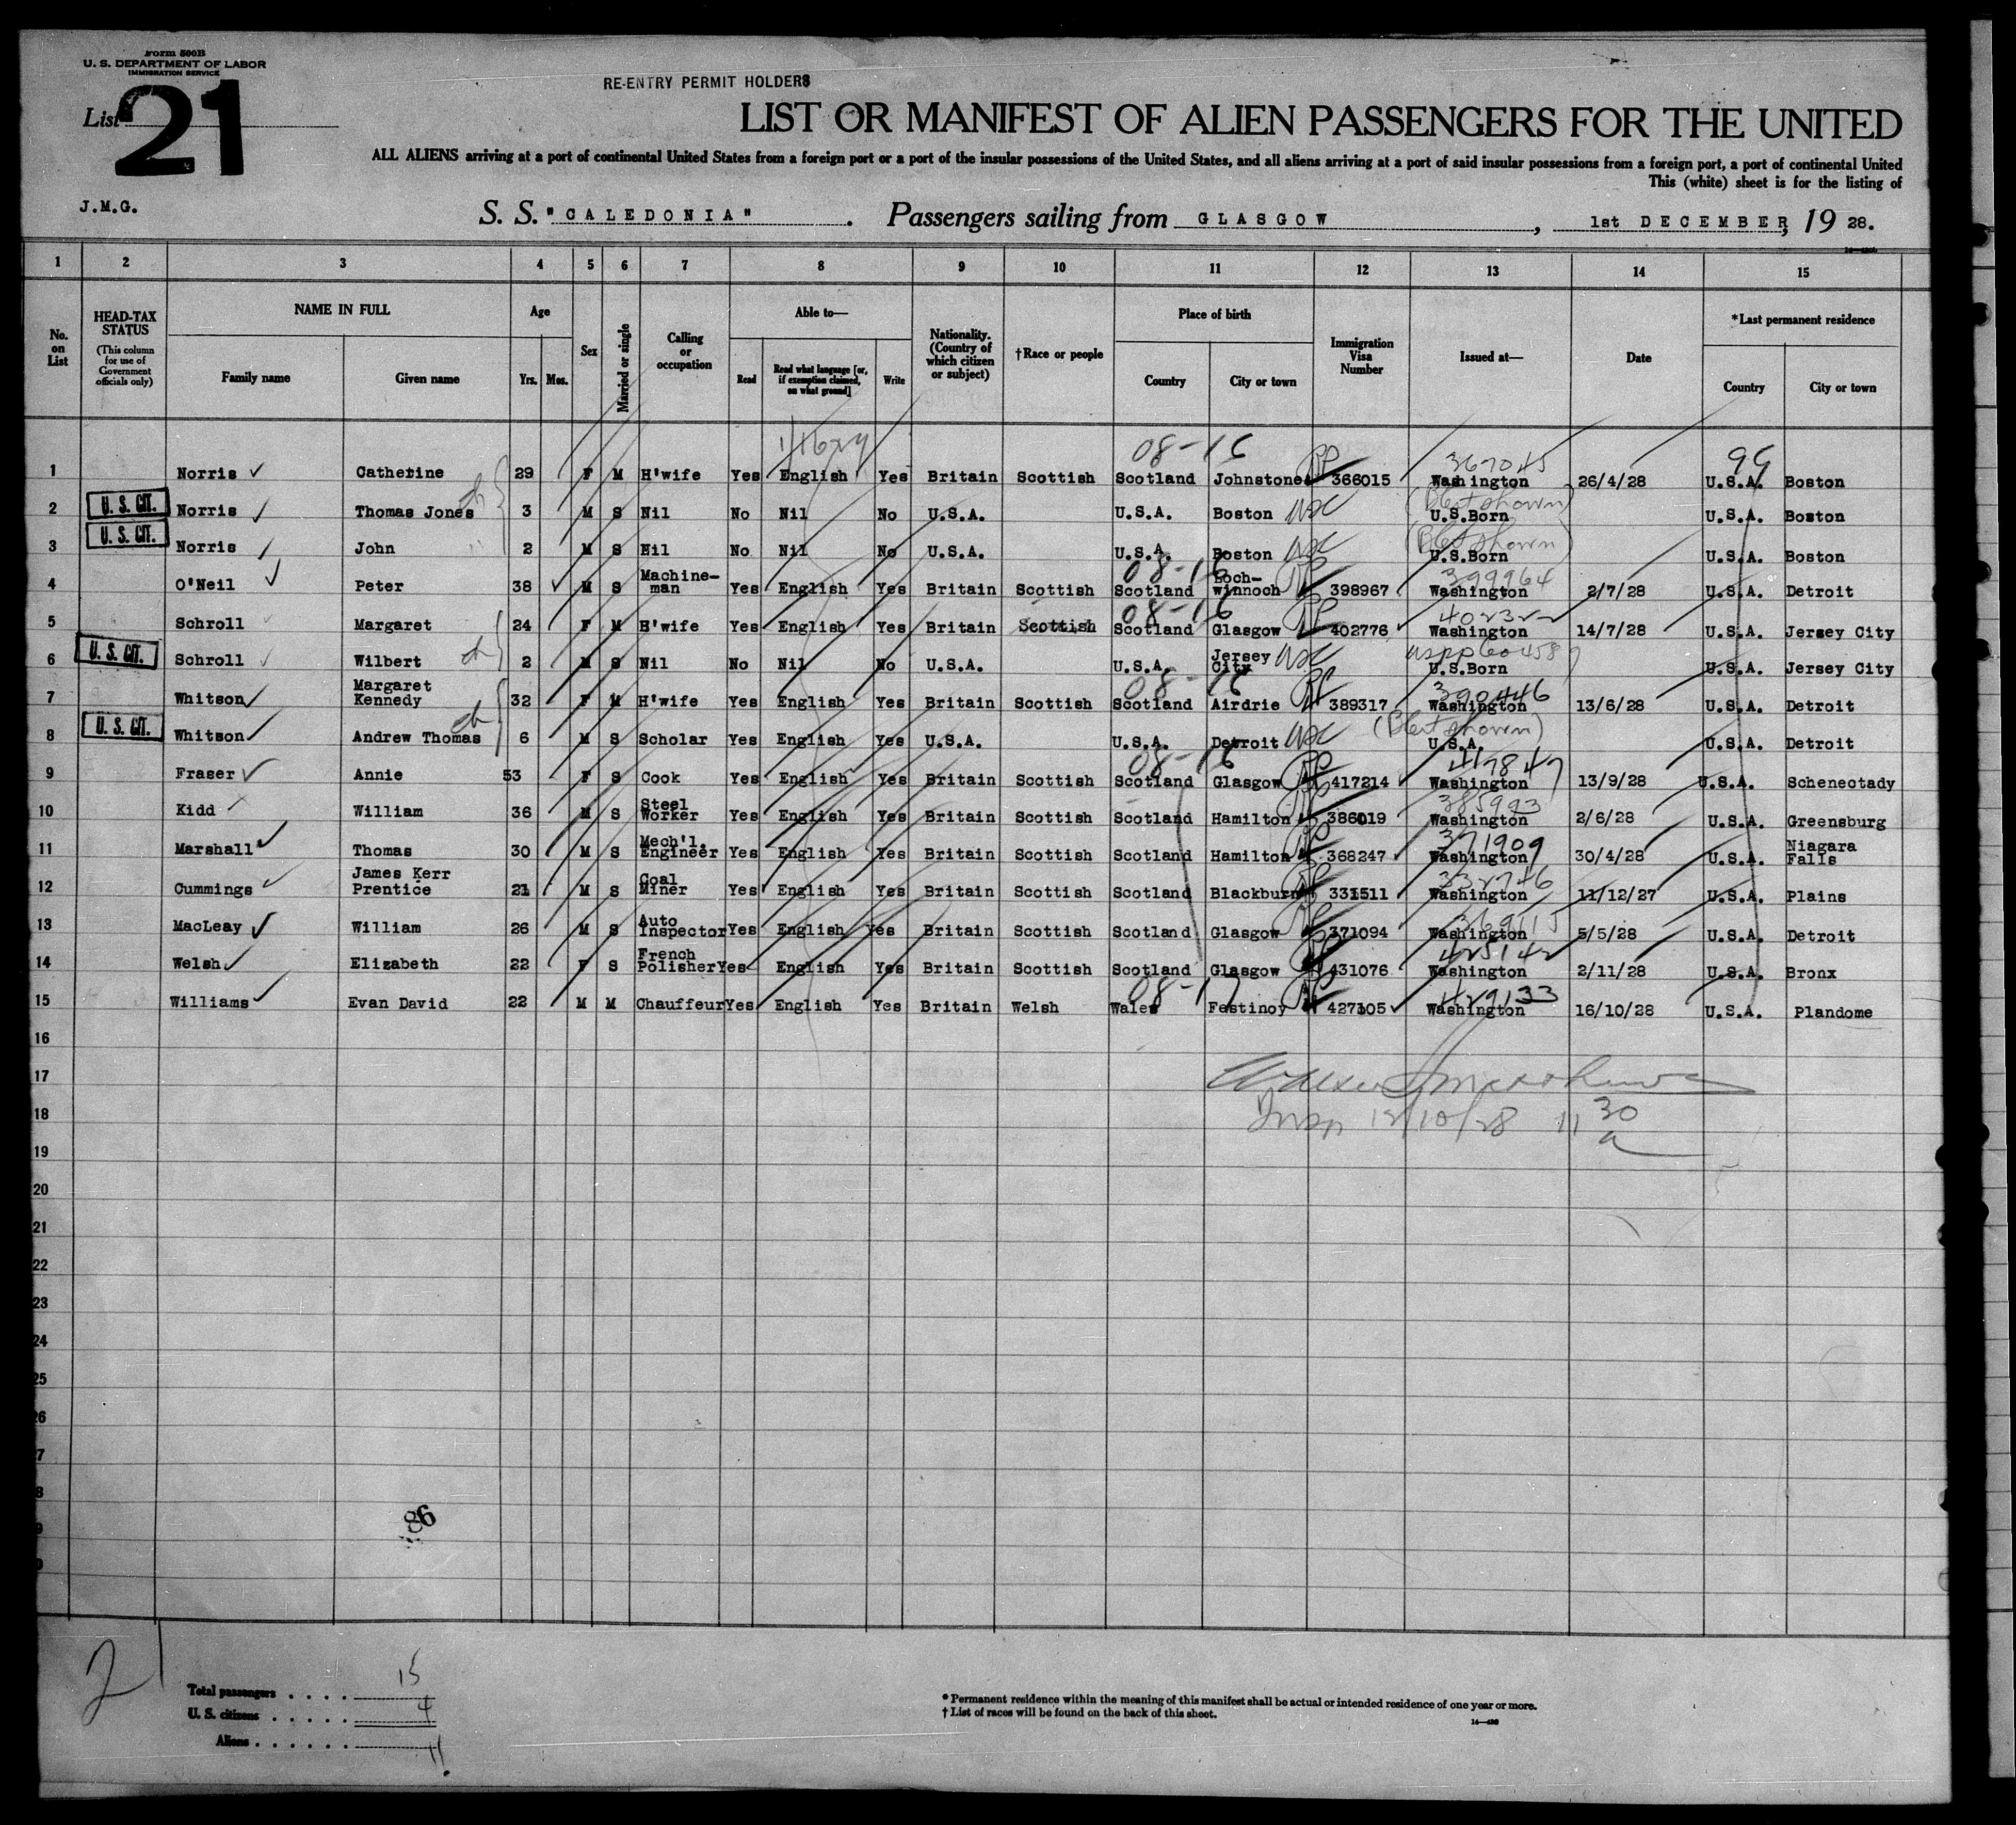 Form 500B
U. S. DEPARTMENT OF LABOR
IMMIGRATION SERVICE
RE-ENTRY PERMIT HOLDERS
List 21
LIST OR MANIFEST OF ALIEN PASSENGERS FOR THE UNITED
ALL ALIENS arriving at a port of continental United States from a foreign port or a port of the insular possessions of the United States, and all aliens arriving at a port of said insular possessions from a foreign port, a port of continental United
This (white) sheet is for the listing of
J.M.G.
S. S. "CALEDONIA". Passengers sailing from GLASGOW, 1st DECEMBER, 19 28.
1 2 3 4 5 6 7 8 9 10 11 12 13 14 15
No. on List
HEAD-TAX STATUS (This column for use of Government officials only)
NAME IN FULL Family name Given name
Age Yrs. Mos.
Sex
Married or single
Calling or occupation
Able to— Read Read what language [or, if exemption claimed, on what ground] Write
Nationality. (Country of which citizen or subject)
†Race or people
Place of birth Country City or town
Immigration Visa Number
Issued at—
Date
*Last permanent residence Country City or town
08-16 99
367045
1 Norris Catherine 29 F M H'wife Yes English Yes Britain Scottish Scotland Johnstone 366015 Washington 26/4/28 U.S.A. Boston
2 U. S. CIT. Norris Thomas Jones ch 3 M S Nil No Nil No U.S.A. U.S.A. Boston USC U.S.Born U.S.A. Boston
3 U. S. CIT. Norris John 2 M S Nil No Nil No U.S.A. U.S.A. Boston USC U.S.Born U.S.A. Boston
08-16 399964
4 O'Neil Peter 38 M S Machine-man Yes English Yes Britain Scottish Scotland Loch-winnoch 398967 Washington 2/7/28 U.S.A. Detroit
08-16 402322
5 Schroll Margaret 24 F M H'wife Yes English Yes Britain Scottish Scotland Glasgow 402776 Washington 14/7/28 U.S.A. Jersey City
6 U. S. CIT. Schroll Wilbert ch 2 M S Nil No Nil No U.S.A. U.S.A. Jersey City USC U.S.Born U.S.A. Jersey City
08-16 390446
7 Whitson Margaret Kennedy 32 F M H'wife Yes English Yes Britain Scottish Scotland Airdrie 389317 Washington 13/6/28 U.S.A. Detroit
8 U. S. CIT. Whitson Andrew Thomas ch 6 M S Scholar Yes English Yes U.S.A. U.S.A. Detroit USC U.S.A. U.S.A. Detroit
08-16 417847
9 Fraser Annie 53 F S Cook Yes English Yes Britain Scottish Scotland Glasgow 417214 Washington 13/9/28 U.S.A. Schenectady
385993
10 Kidd William 36 M S Steel Worker Yes English Yes Britain Scottish Scotland Hamilton 386019 Washington 2/6/28 U.S.A. Greensburg
371909
11 Marshall Thomas 30 M S Mech'l. Engineer Yes English Yes Britain Scottish Scotland Hamilton 368247 Washington 30/4/28 U.S.A. Niagara Falls
332746
12 Cummings James Kerr Prentice 21 M S Coal Miner Yes English Yes Britain Scottish Scotland Blackburn 331511 Washington 11/12/27 U.S.A. Plains
369115
13 MacLeay William 26 M S Auto Inspector Yes English Yes Britain Scottish Scotland Glasgow 371094 Washington 5/5/28 U.S.A. Detroit
425142
14 Welsh Elizabeth 22 F S French Polisher Yes English Yes Britain Scottish Scotland Glasgow 431076 Washington 2/11/28 U.S.A. Bronx
08-17 429133
15 Williams Evan David 22 M M Chauffeur Yes English Yes Britain Welsh Wales Festinoy 427105 Washington 16/10/28 U.S.A. Plandome
16
17
18 12/10/28 11 30 a
19
20
21
22
23
24
25
26
7
8
9
0
86
21
Total passengers . . . . 15
U. S. citizens . . . . . 4
Aliens . . . . . . 11
* Permanent residence within the meaning of this manifest shall be actual or intended residence of one year or more.
† List of races will be found on the back of this sheet.